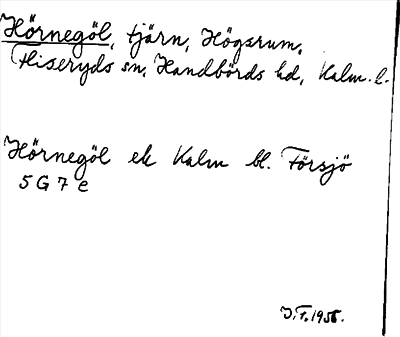 Hörnegöl, tjärn, Högsrum,
Fliseryds sn, Handbörds hd, Kalm. l.
Hörnegöl ek Kalm bl. Försjö
5 G 7 e
J.T. 1956.